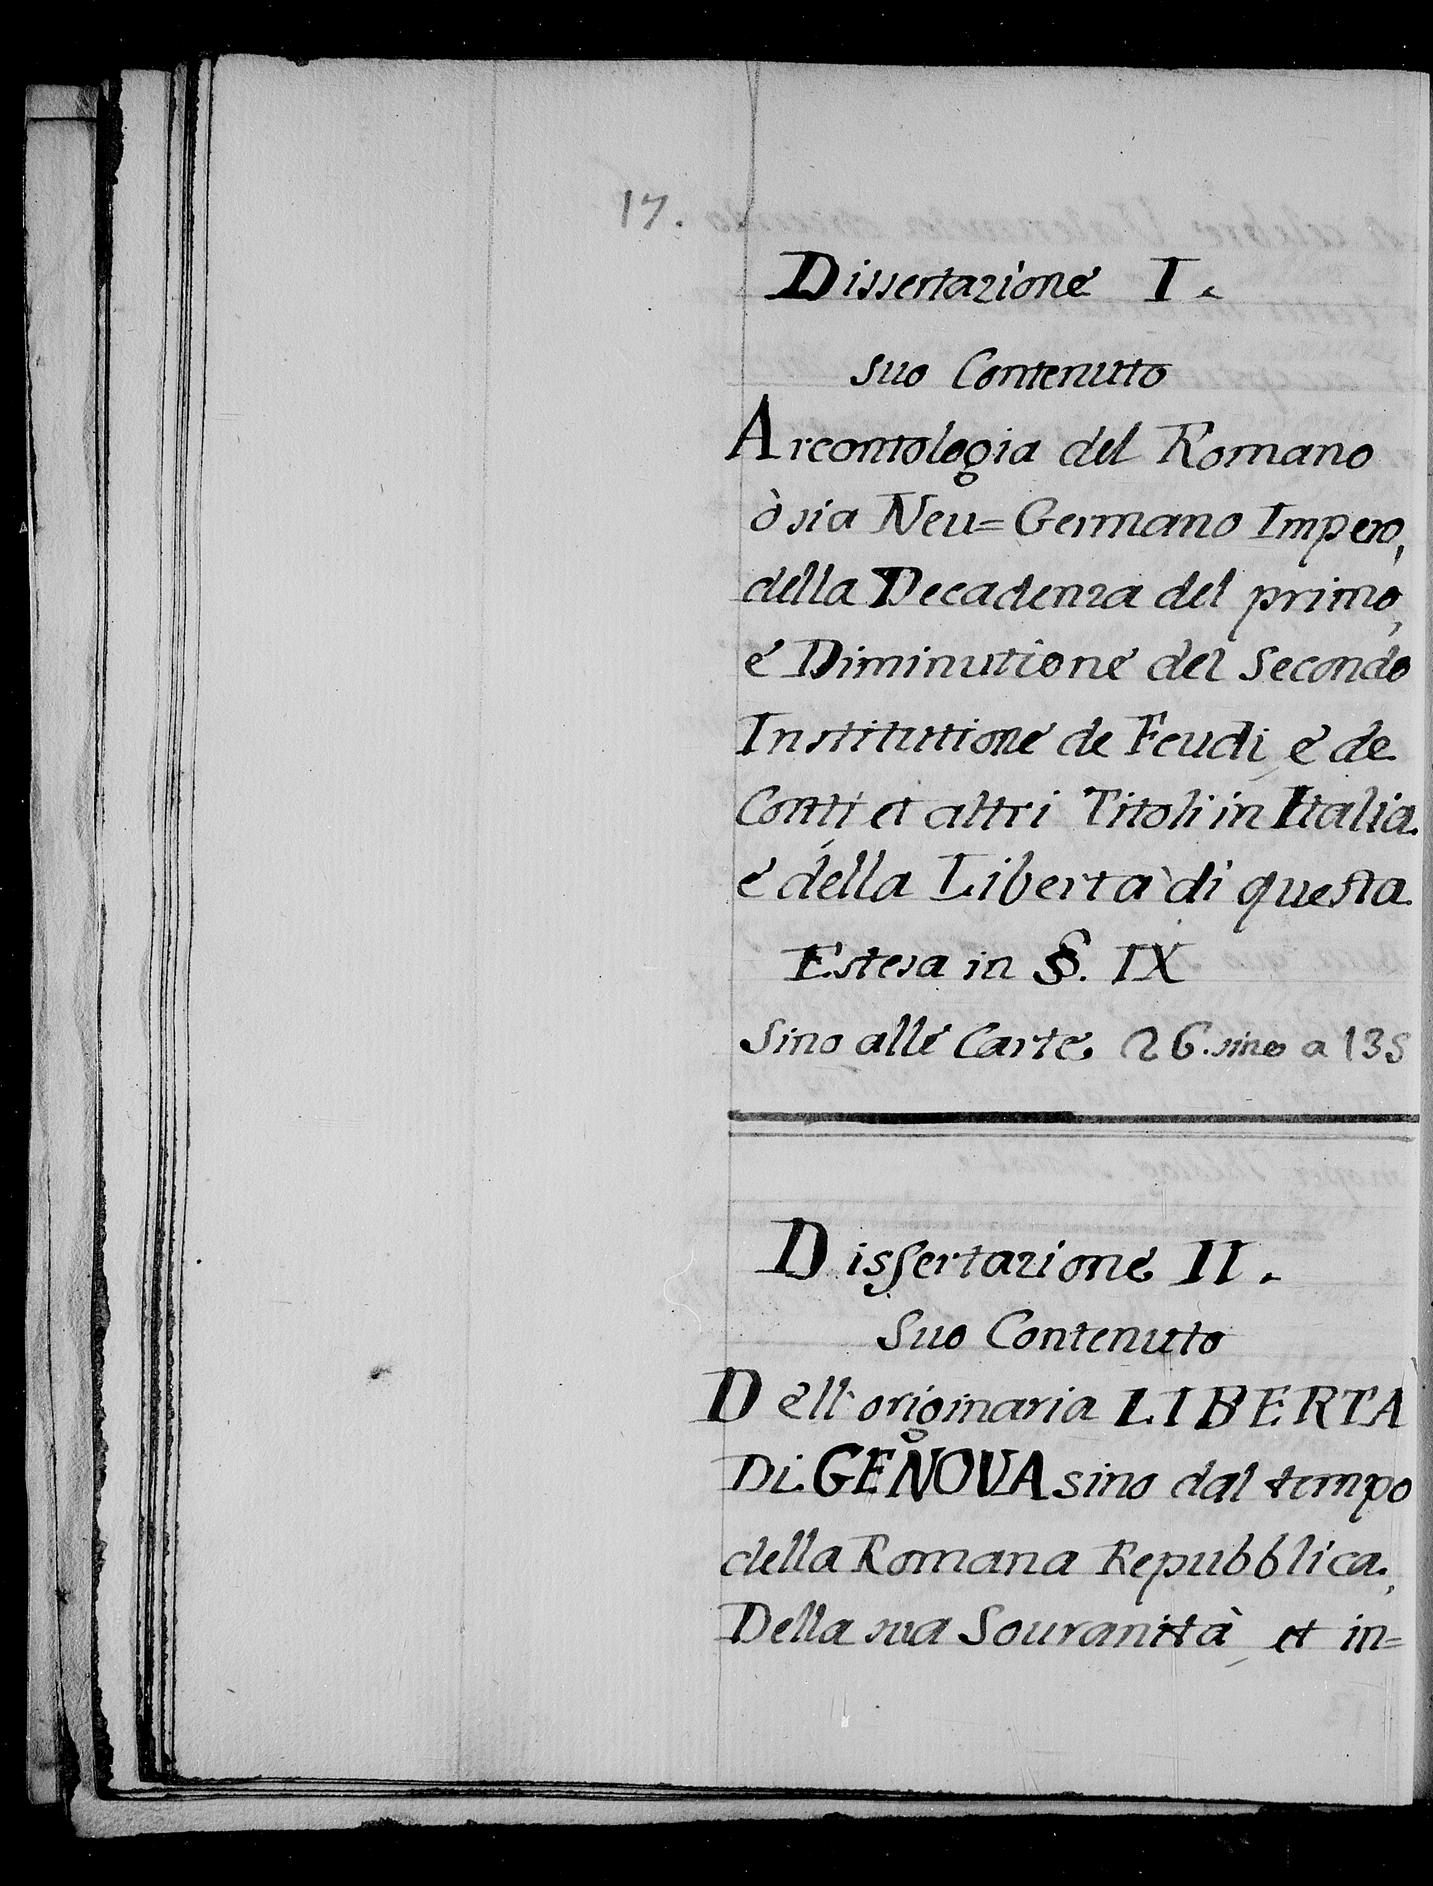 17.
Dissertazione I.
suo Contenutto
Arcontologia del Romano
ò sia Neu=Germano Impero,
della Decadenza del primo,
è Diminutione del Secondo
Institutione de Feudi, è de
Conti, et altri Titoli in Italia.
è della Libertà di questa
Estesa in §. IX
Sino alle Carte 26. sino a 135
Dissertazione II.
Suo Contenuto
Dell'originaria LIBERTA
Di GENOVA sino dal tempo
della Romana Repubblica,
Della sua Souranità, et in=